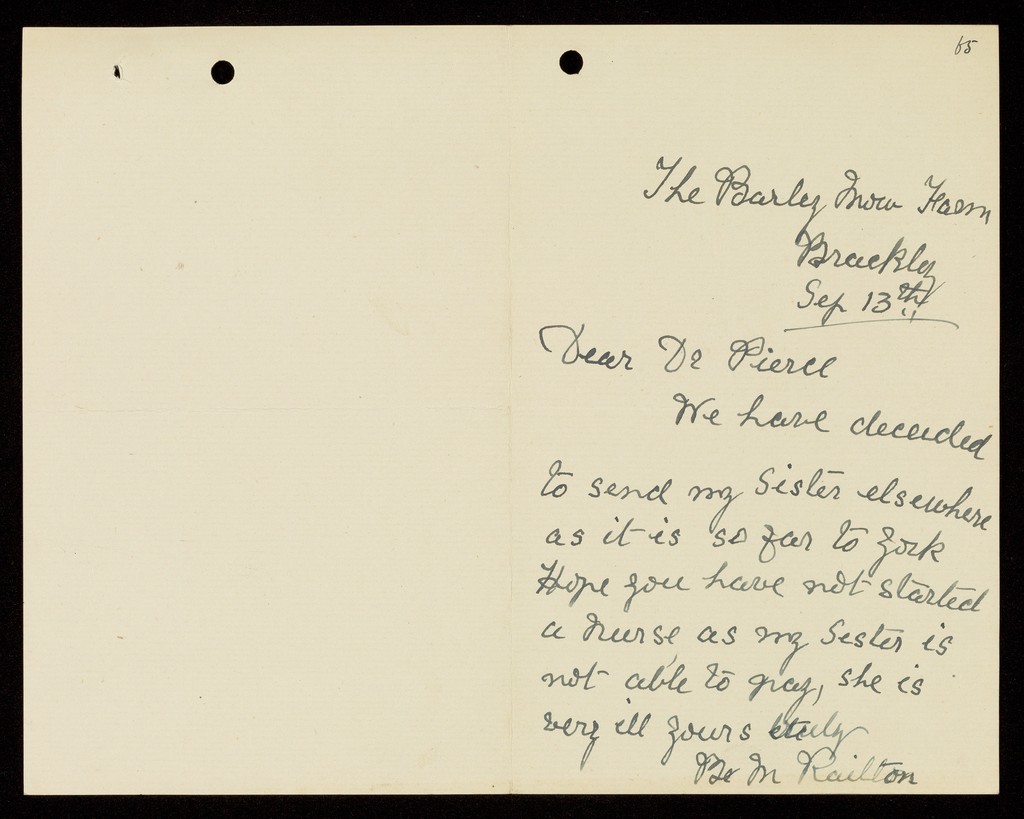 65
The Barley Mow Farm
Brackley
Sep 13th
Dear Dr Pierce
We have deceided
to send my Sister elsewhere
as it is so far to York
Hope you have not started
a Nurse, as my Sister is
not able to pay, she is
very ill yours truly
M Railton